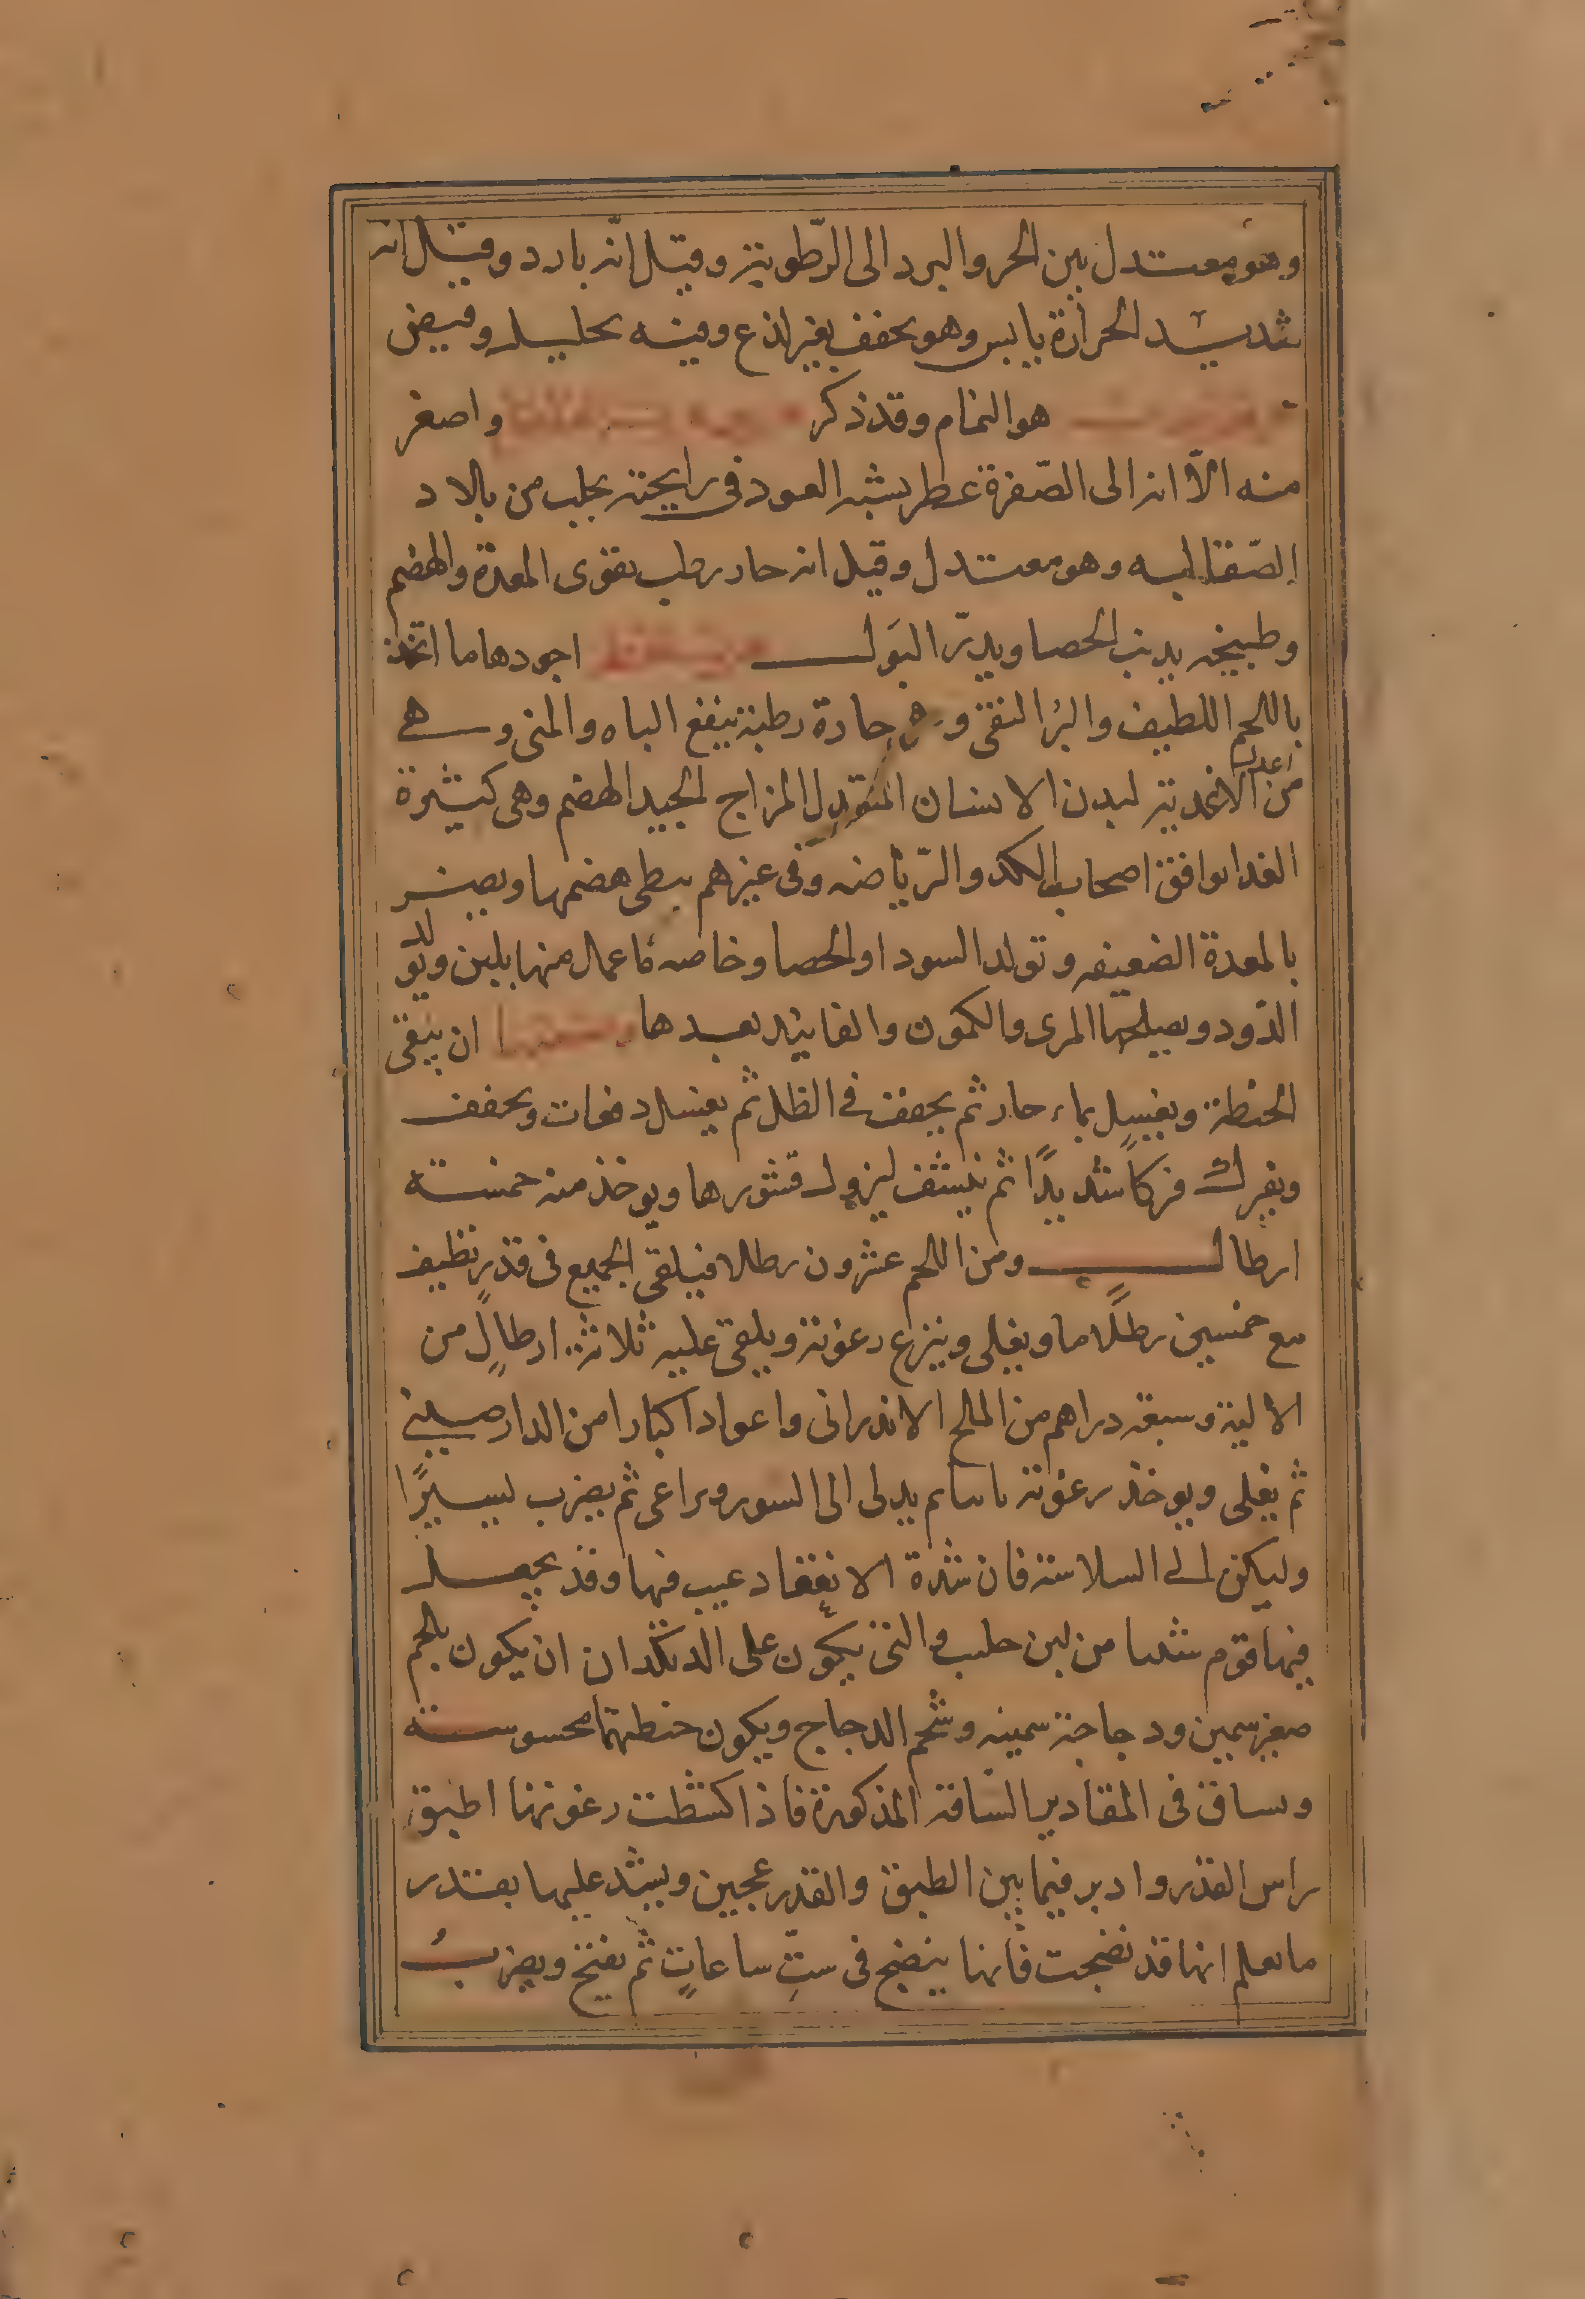 وهو معتدل بين الحر والبرد الى الرّطوبة وقيل انّه بارد وقيل انه
شديد الحرارة يابس وهو يجفف بغير لذع وفيه تحليل وقبض
هو النمام وقد ذكر واصغر
منه الّا انه الى الصّفرة عطر يشبه العود فى رايحته يجلب من بالاد
الصّقالبه وهو معتدل وقيل انه حار رطب يقوى المعدة والهضم
وطبيخه يذيب الحصا ويدرّ البَول اجودها ما اتخذ
باللحم اللطيف والبُر النقى وهى حارة رطبة ينفع الباه والمنى وهى
من اعدل الاغذية لبدن الانسان المعتدل المزاج الجيد الهضم وهى كثيرة
الغدا يوافق اصحاب الكد والرّياضه وفى غيرهم يبطى هضمها ويضر
بالمعدة الضعيفه وتولد السودا والحصا وخاصه ما عمل منها بلبن ويولد
الدّود ويصلحها المرى والكمون والفانيد بعدها ان ينقى
الحنطة ويغسل بماء حار ثم يجفف فى الظل ثم يغسل دفعات ويجفف
ويفرك فركاً شديدًا ثم ينشف ليزول قشورها ويوخذ منه خمسة
ارطال ومن اللحم عشرون رطلا فيلقى الجميع فى قدر نظيف
مع خمسين رطلًا ما ويغلى وينزع رغوته ويلقى عليه ثلاثة ارطالٍ من
الالية وسبعة دراهم من الملح الاندرانى واعوادا كبارا من الدارصينى
ثم يغلى ويوخذ رغوته يدلى الى التنور ويراعى ثم يضرب يسيرًا
وليكن الى السلاسة فان شدة الانعقاد عيب فيها وقد يجعل
فيها قوم شيا من لبن حليب والتى يكون على الديكدان ان يكون بلحم
صغير سمين ودجاجة سمينه وشحم الدجاج ويكون حنطتها محسوسة
ويساق فى المقادير السّاقة المذكورة فاذا كشطت رغوتها اطبق
راس القدر وادير فيما بين الطبق والقدر عجين ويشد عليها بقدر
ما يعلم انها قد نضجت فانها ينضج فى ستِّ ساعاتٍ ثم يفتح ويضربُ